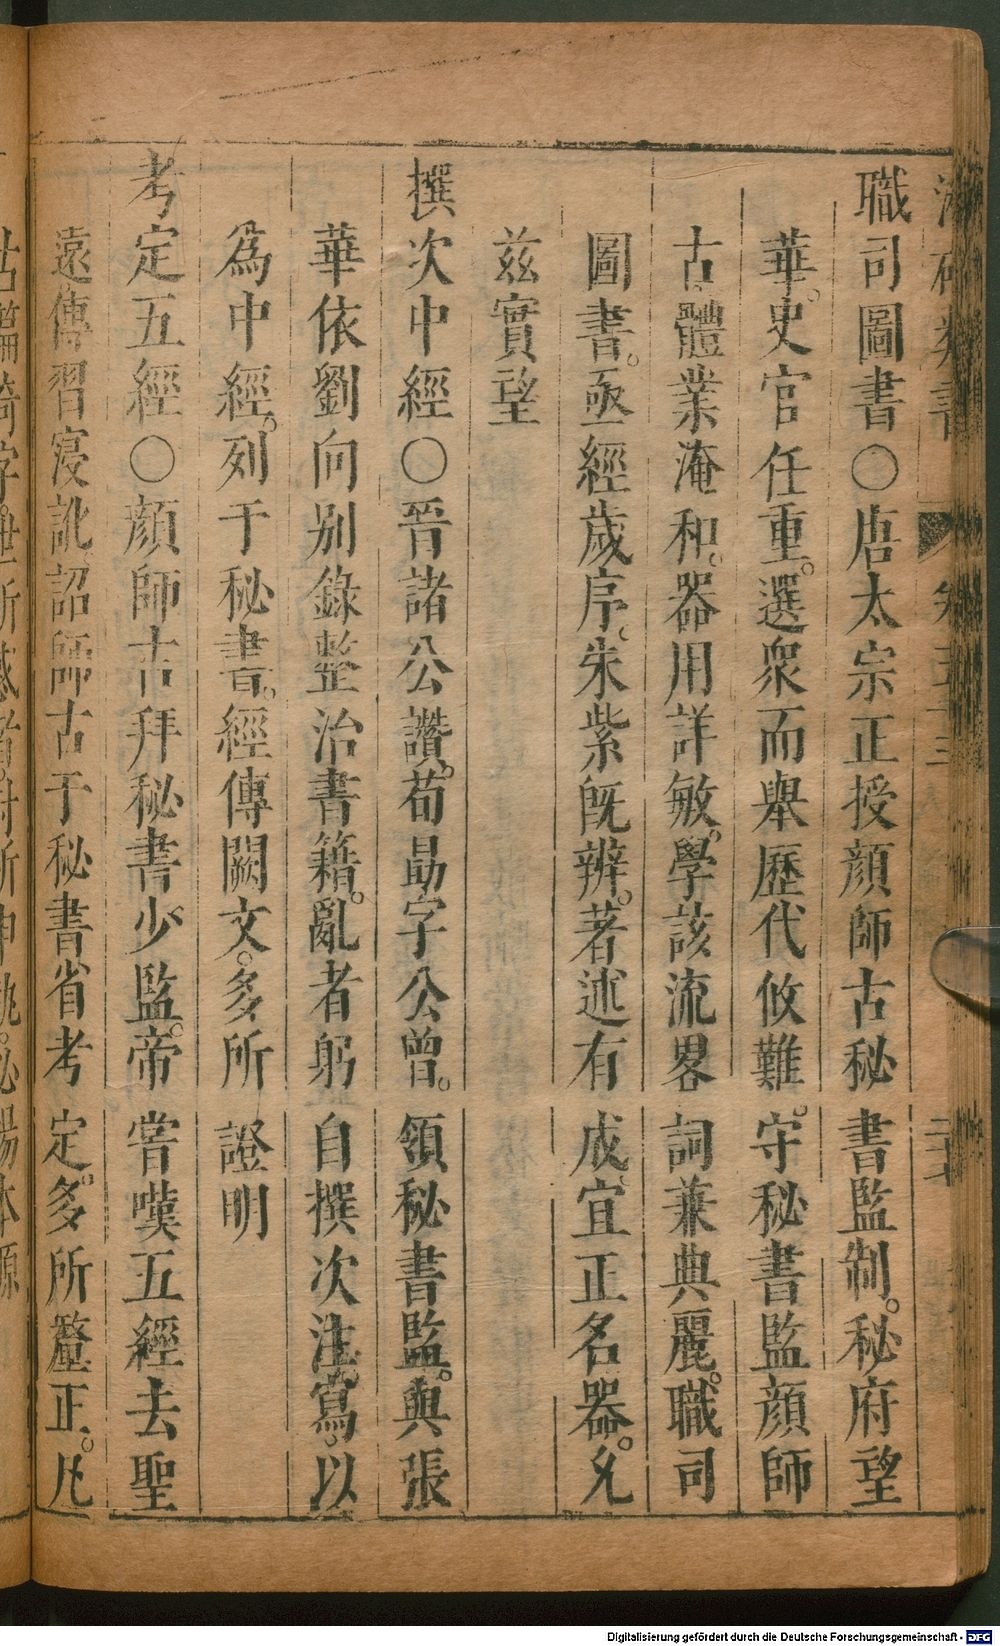 職司圖書○唐太宗正授顔師古秘書監制。秘府望
華。史官任重。選衆而舉歷代攸難。守秘書監顔師
古體業淹和。器用詳敏。學該流畧詞兼典麗。職司
圖書。亟經歲序。朱紫既辨。著述有成。宜正名器。允
兹實望
撰次中經○晉諸公讚。荀勗字公曾。領秘書監。與張
華依劉向别錄整治書籍。亂者躬自撰次注寫。以
為中經。列于秘書。經傳闕文。多所證明
考定五經○顔師古拜秘書少監。帝嘗嘆五經去聖
遠傳習寖訛詔師古于秘書省考定。多所釐正。凡
Digitalisierung gefördert durch die Deutsche Forschungsgemeinschaft - DFG